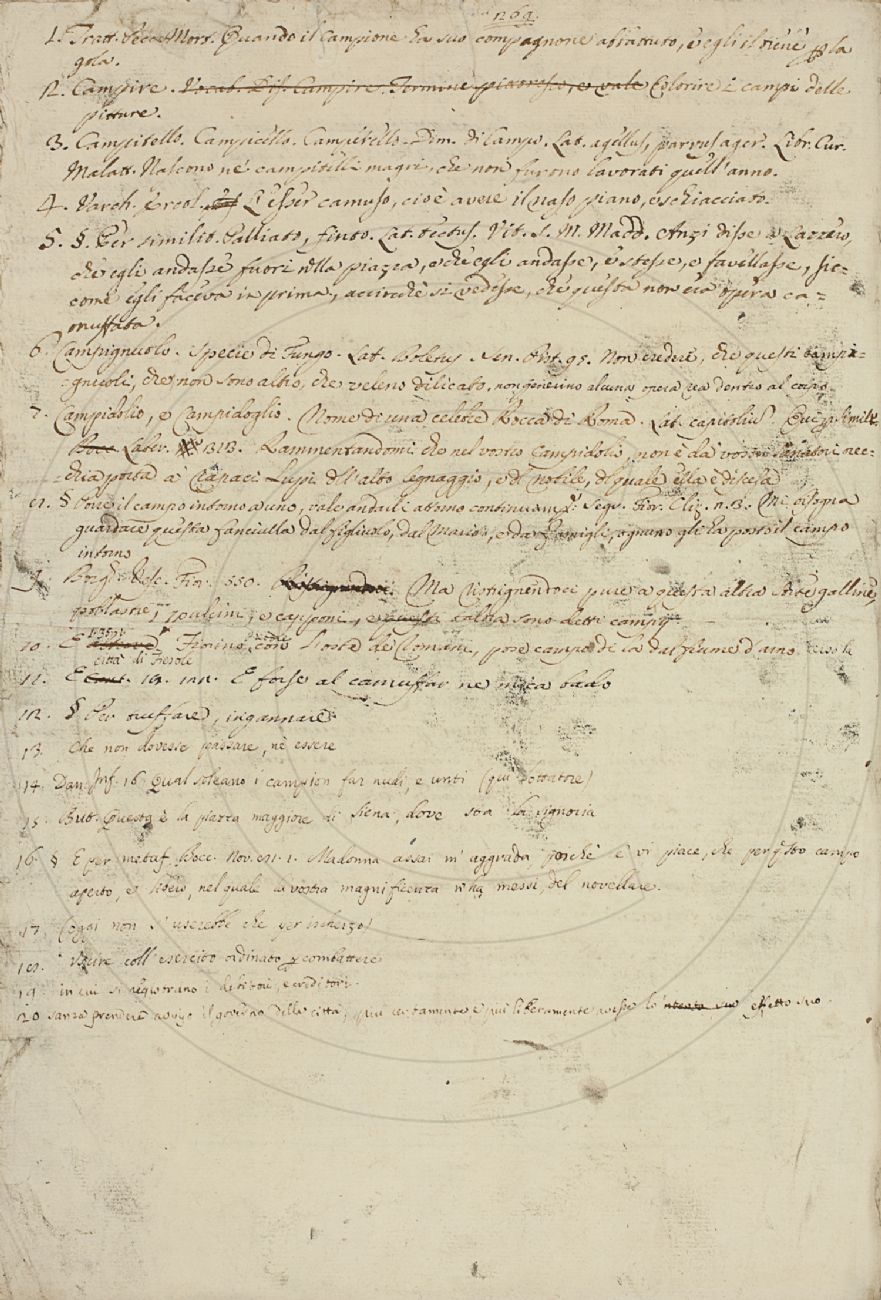 1. Tratt. Pecc. Mort. Quando il campione ha suo compagnone abbattuto, e egli il tiene per la
gola.
2. Campire. Vocab. Dis. Campire. Termine pittoresco, e vale Colorire i campi delle
pitture.
3. Campitello. Campicello. Campitello. Dim. di Campo. Lat. agellus, parvus ager. Libr. Cur.
Malatt. Nascono ne' campitelli magri, che non furono lavorati quell'anno.
4. Varch. Ercol. L'esser camuso, cioè avere il naso piano, e schiacciato.
5. §. Per similit. Palliato, finto. Lat. tectus. Vit. S. M. Madd. Anzi disse a Lazzero,
che egli andasse fuori nlla piazza, e che egli andasse, e stesse, e favellasse, sic=
come egli faceva in prima, acciocchè si vedesse, che questa non era opera ca=
muffata.
6. Campignuolo. Specie di Fungo. Lat. boletus. Sen. Pist. 95. Non credere, che questi campi=
=gnuoli, che non sono altro, che veleno dilicato, non generino alcuna opera rea dentro al corpo
7. Campidolio, e Campidoglio. Nome di una celebre Rocca di Roma. Lat. capitoliu Qui p. simil.
Bocc. Laber. 313. Rammentandomi che nel vostro Campidolio, non è da' vostri Senatori orec=
=chia porta a' rapaci Lupi dll'alto legnaggio, e dl nobile, dl quale ella è discesa
8. § Porre il campo intorno a uno, vale andarli attorno continuam. Segn. Fior. Cliz. n. 3. Mi bisogna
guardare questa fanciulla dal figliuolo, dal Marito, e da Famigli, ognuno gli ha posto il campo
intorno
9. Borg. Vesc. Fior. 550. Ma ristrignendoci pure a questa altra Arte galline,
pollastre, pulcini, e capponi,
10. E Fiorino con l'oste de' Romani, pose campo di la dal fiume d'arno verso la
città di Fiesole
11. E cant. 19. E forse al camuffar ne mica bado
12. § Per truffare, ingannare
13. Che non dovesse passare, nè essere
14. Dan. Inf. 16. Qual soleano i campion far nudi, e unti (qui lottatore)
15. But. Questa è la piazza maggiore di Siena, dove sta la signoria
16. § E per metaf. Bocc. Nov. 81. 1. Madonna assai m'aggrada, poichè e' vi piace, che per qsto campo
aperto, e libero, nel quale la vostra magnificenza n'ha messi, del novellare.
17. (oggi non s'userebbe che per ischerzo)
18. Uscire coll'esercito ordinato p combattere
19. in cui si registrano i debitori, e creditori.
20 sanza prendere aveva il governo della città, più certamente e più liberamente avesse lo intento suo effetto suo.